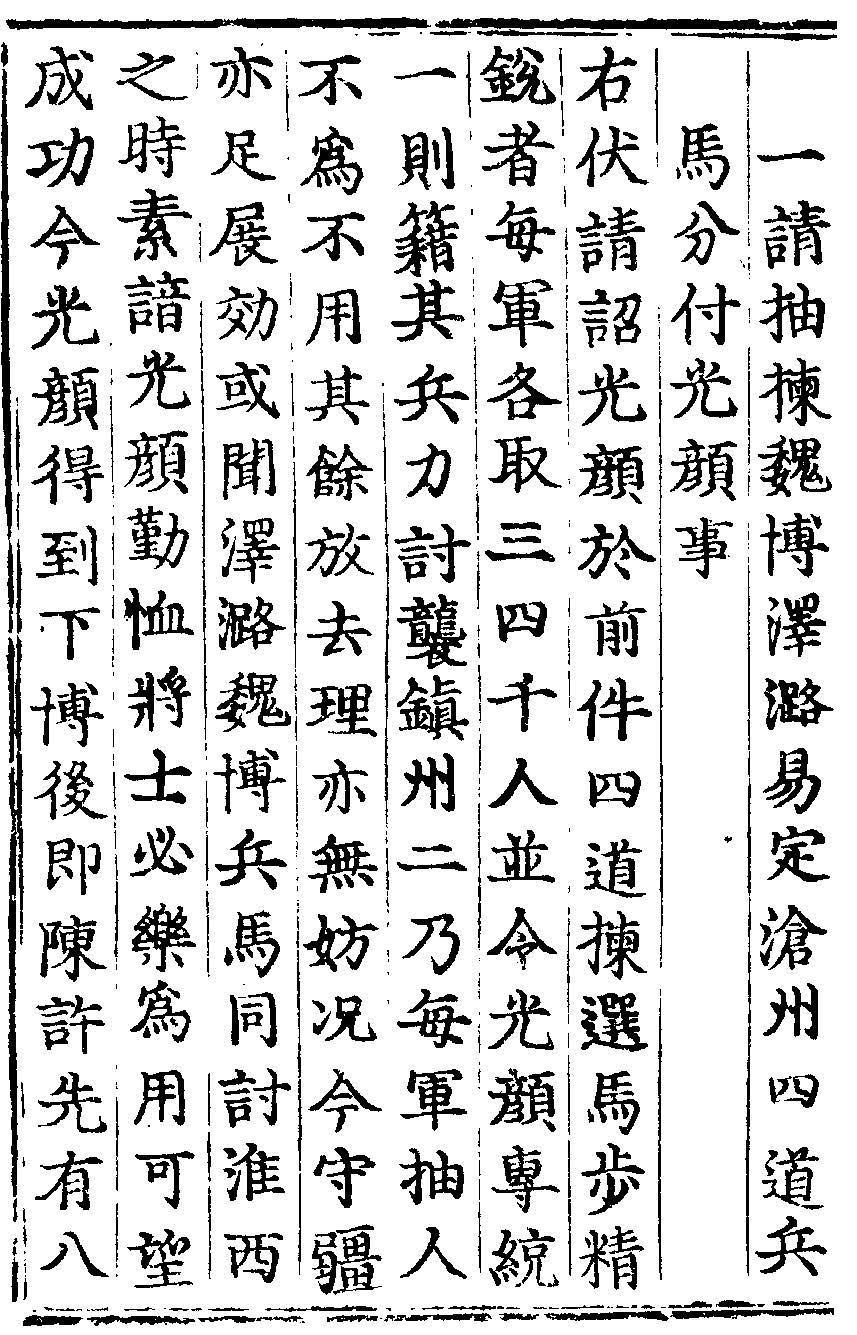 一請抽揀魏博澤潞易定滄州四道兵
馬分付光顔事
右伏請詔光顔於前件四道揀選馬步精
銳者每軍各取三四千人並令光顔專統
一則籍其兵力討襲鎮州二乃每軍抽人
不爲不用其餘放去理亦無妨况今守疆
亦足展效或聞澤潞魏博兵馬同討淮西
之時素諳光顔勤恤將士必樂爲用可望
成功今光顔得到下博後即陳許先有八